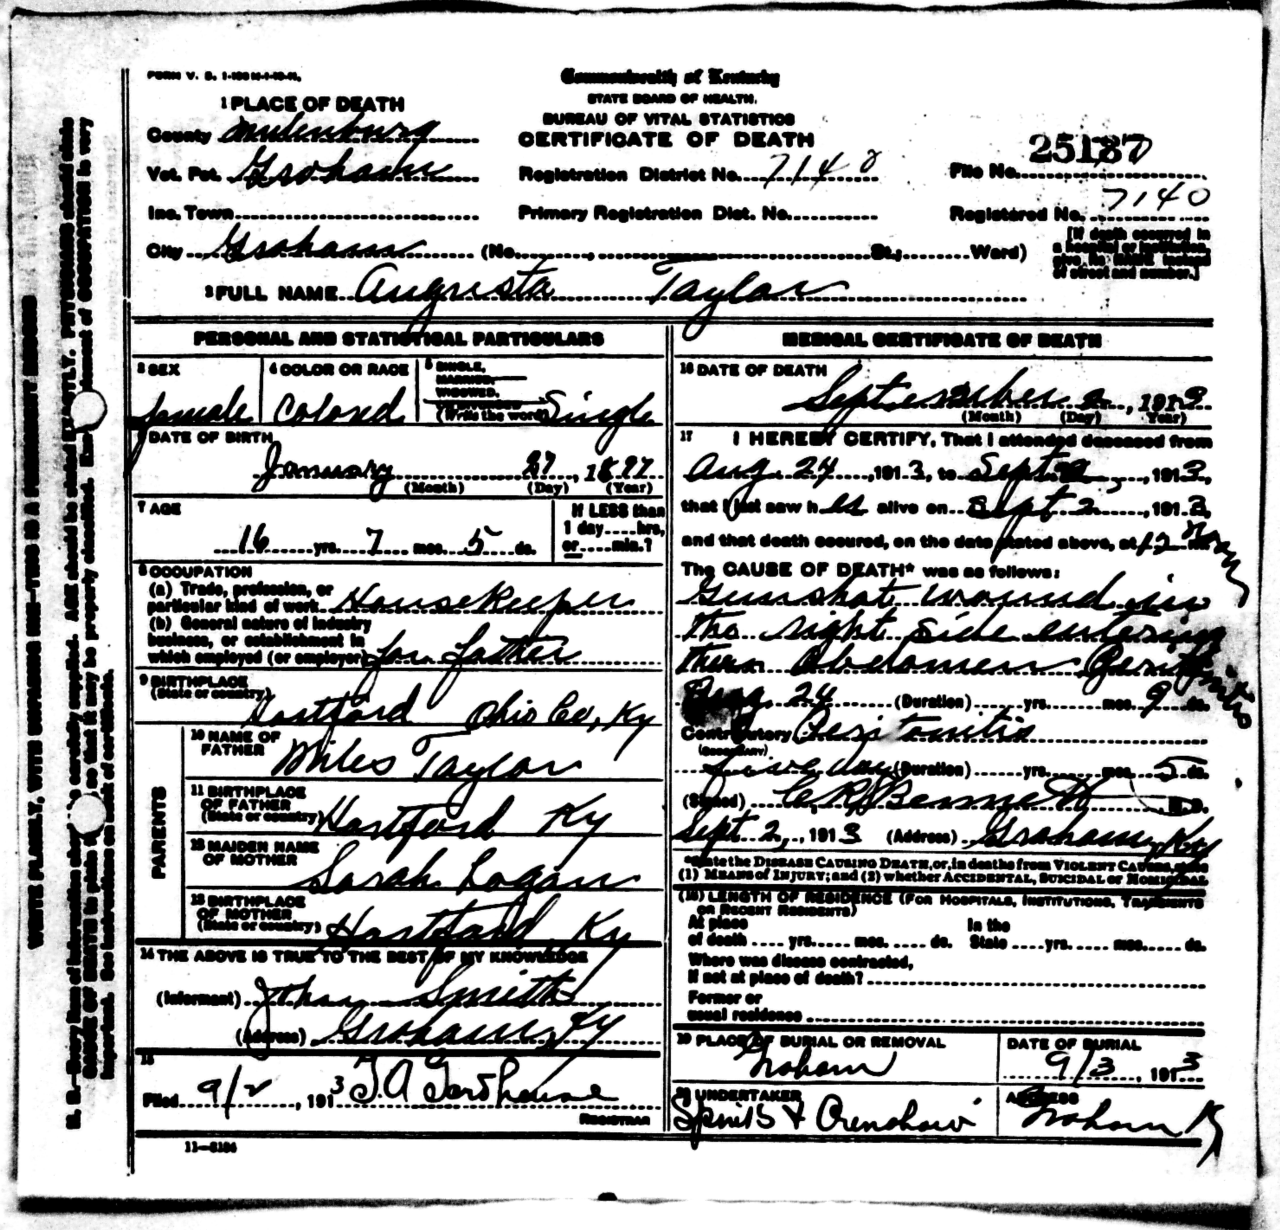 FORM V. S. 1-
Commonwealth of Kentucky
STATE BOARD OF HEALTH.
BUREAU OF VITAL STATISTICS
CERTIFICATE OF DEATH
1 PLACE OF DEATH
County Mulenburg
Vot. Pct. Graham
Registration District No. 7140
File No. 25187
Inc. Town
Primary Registration Dist. No.
Registered No. 7140
City Graham (No. , St.; Ward)
[If death occurred in
a hospital or institution,
give its NAME instead
of street and number.]
2 FULL NAME Augusta Taylor
PERSONAL AND STATISTICAL PARTICULARS
3 SEX
female
4 COLOR OR RACE
Colored
5 SINGLE,
MARRIED,
WIDOWED,
(Write the word) Single
DATE OF BIRTH
January 27, 1897
(Month) (Day) (Year)
7 AGE
16 yrs. 7 mos. 5 ds.
If LESS than
1 day hrs.
or min.?
8 OCCUPATION
(a) Trade, profession, or
particular kind of work Housekeeper
(b) General nature of industry
business, or establishment in
which employed (or employer) for father
9 BIRTHPLACE
(State or country)
Hartford Ohio Co, Ky
PARENTS
10 NAME OF
FATHER
Miles Taylor
11 BIRTHPLACE
OF FATHER
(State or country) Hartford Ky
12 MAIDEN NAME
OF MOTHER
Sarah Logan
13 BIRTHPLACE
OF MOTHER
(State or country) Hartford Ky
14 THE ABOVE IS TRUE TO THE BEST OF MY KNOWLEDGE
(Informant) John Smith
(Address) Graham, Ky
15
Filed 9/2, 1913 T A
REGISTRAR
11-5184
MEDICAL CERTIFICATE OF DEATH
16 DATE OF DEATH
September 2, 1913
(Month) (Day) Year)
17 I HEREBY CERTIFY, That I attended deceased from
Aug. 24, 1913, to Sept 2, 1913,
that I last saw h er alive on Sept 2, 1913,
and that death occured, on the date stated above, at 12 m.
The CAUSE OF DEATH* was as follows:
Gunshot wound in
the right side entering
Abdomen Peritonitis
Aug. 24 (Duration) yrs. mos. 9 ds.
Contributory Peritonitis
(SECONDARY)
Five days (Duration) yrs. mos. 5 ds.
(Signed) Bennett M.D.
Sept 2, 1913 (Address) Graham, Ky
*State the DISEASE CAUSING DEATH, or, in deaths from VIOLENT CAUSES, state
(1) MEANS OF INJURY; and (2) whether ACCIDENTAL, SUICIDAL or HOMICIDAL
(18) LENGTH OF RESIDENCE (FOR HOSPITALS, INSTITUTIONS, TRANSIENTS
OR RECENT RESIDENTS)
At place In the
of death yrs. mos. ds. State yrs. mos. ds.
Where was disease contracted,
if not at place of death?
Former or
usual residence
19 PLACE OF BURIAL OR REMOVAL
Graham
DATE OF BURIAL
9/3, 1913
20 UNDERTAKER
& Crenshaw
ADDRESS
Graham Ky